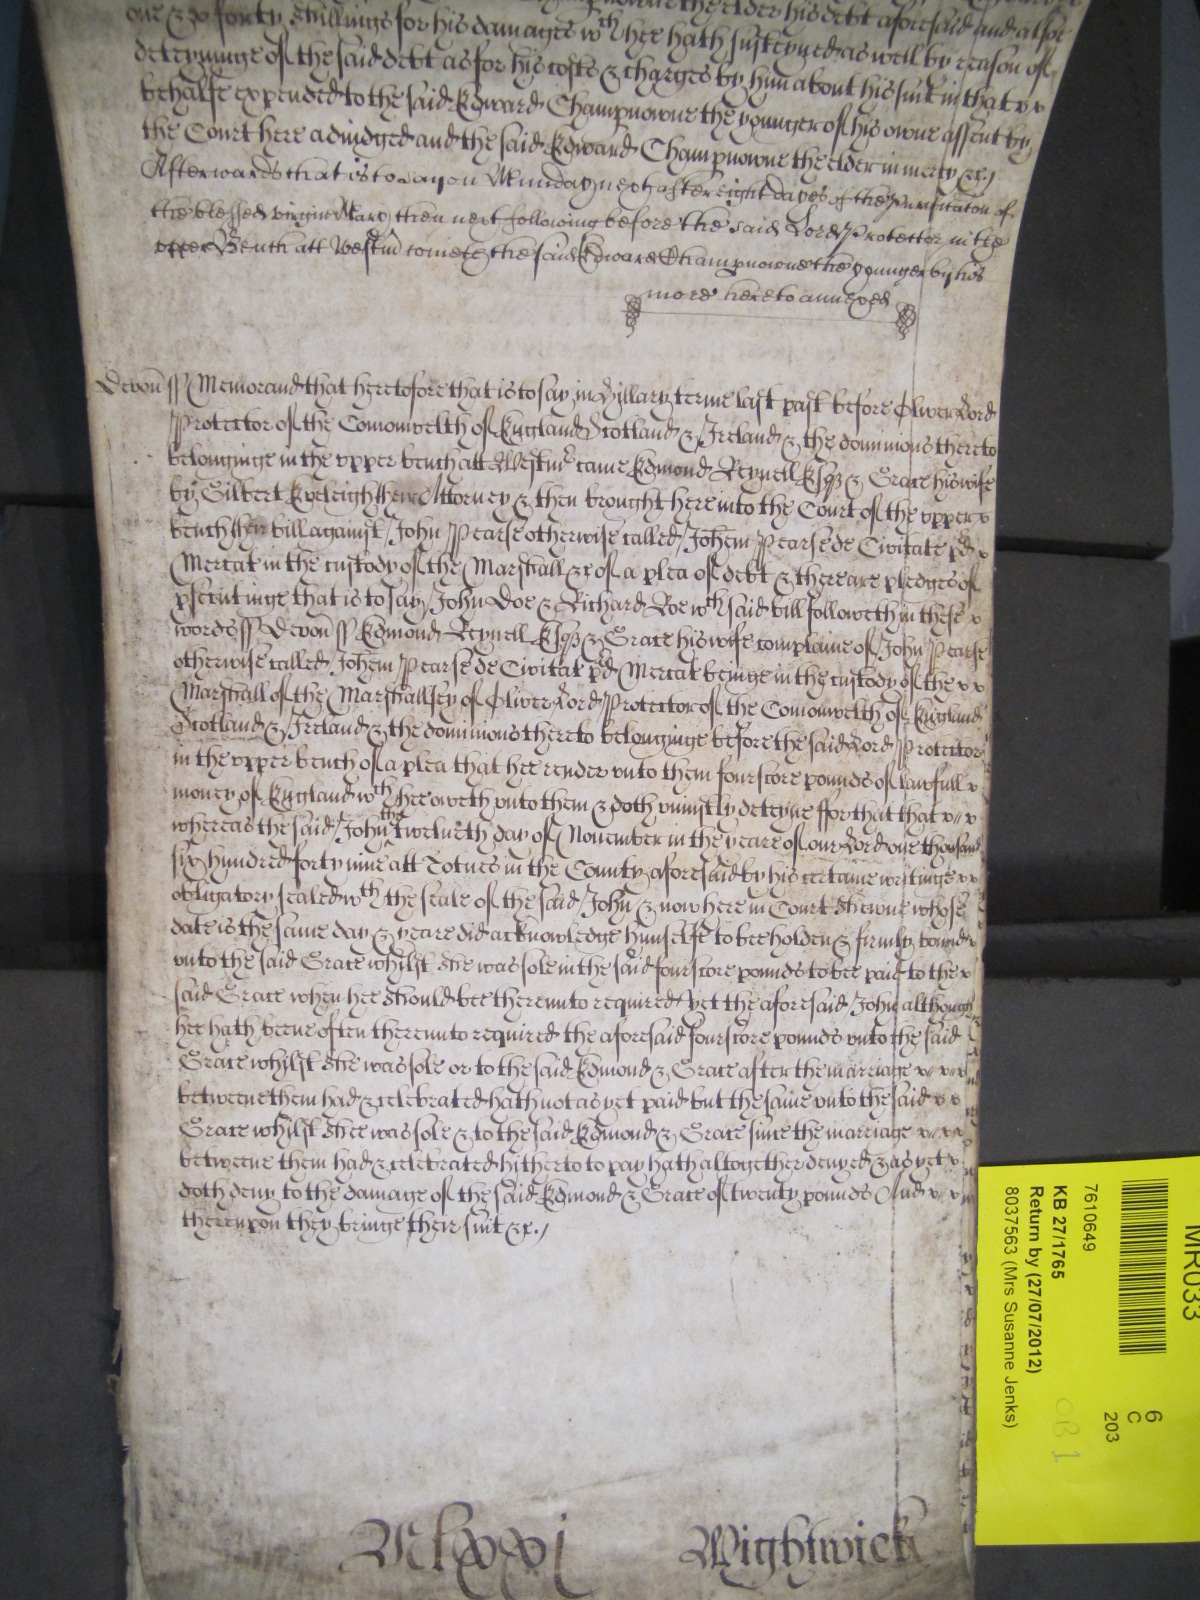 one & xx forty shillings for his damages wch hee hath susteyned as well by reason of
deteyninge of the said debt as for his costs & charges by him about his suit in that
behalfe expended to the said Edward Champnowne the younger of his owne assent by
the Court here adiudged and the said Edward Champnowne the elder in mercy &c
Afterwards that is to say on Munday next after eight dayes of the Purificaton of
the blessed virgin Mary then next following before the said Lord Protector in the
upper Bench att Westmr cometh the said Edward Champnowne the younger by his
more hereto annexed
Devon ss Memorand that heretofore that is to say in Hillary terme last past before Oliver Lord
Protector of the Comonwelth of England Scotland & Ireland & the dominions thereto
belonginge in the upper bench att Westmr came Edmond Reynell Esqr & Grace his wife
by Gilbert Eveleigh their Attorney & then brought here into the Court of the upper
bench their bill against John Pearse otherwise called Johem Pearse de Civitate pd
Mercat in the custody of the Marshall &c of a plea of debt & there are pledges of
psecutinge that is to say John Doe & Richard Roe wch said bill followeth in these
words ss Devon ss Edmond Reynell Esqr & Grace his wife complaine of John Pearse
otherwise called Johem Pearse de Civitat pd Mercat beinge in the custody of the
Marshall of the Marshallsey of Oliver Lord Protector of the Comonwelth of England
Scotland & Ireland & the dominions thereto belonginge before the said Lord Protector
in the upper bench of a plea that hee render unto them fourscore pounds of lawfull
money of England wch hee oweth unto them & doth uniustly deteyne ffor that that
whereas the said John the twelveth day of November in the yeare of our Lord one thousand
six hundred forty nine att Totnes in the County aforesaid by his certaine writinge
obligatory sealed wth the seale of the said John & now here in Court shewne whose
date is the same day & yeare did acknowledge himselfe to bee holden & firmly bound
unto the said Grace whilst she was sole in the said fourscore pounds to bee paid to the
said Grace when hee should bee thereunto required Yet the aforesaid John although
hee hath beene often thereunto required the aforesaid fourscore pounds unto the said
Grace whilst she was sole or to the said Edmond & Grace after the marriage
betweene them had & celebrated hath not as yet paid but the same unto the said
Grace whilst shee was sole & to the said Edmond & Grace since the marriage
betweene them had & celebrated hitherto to pay hath altogether denyed & as yet
doth deny to the damage of the said Edmond & Grace of twenty pounds And
thereupon they bringe their suit &c.
Mlxxxj Wightwick
MR033
6
C
203
7610649
KB 27/1765
Return by (27/07/2012)
8037563 (Mrs Susanne Jenks)
OB 1